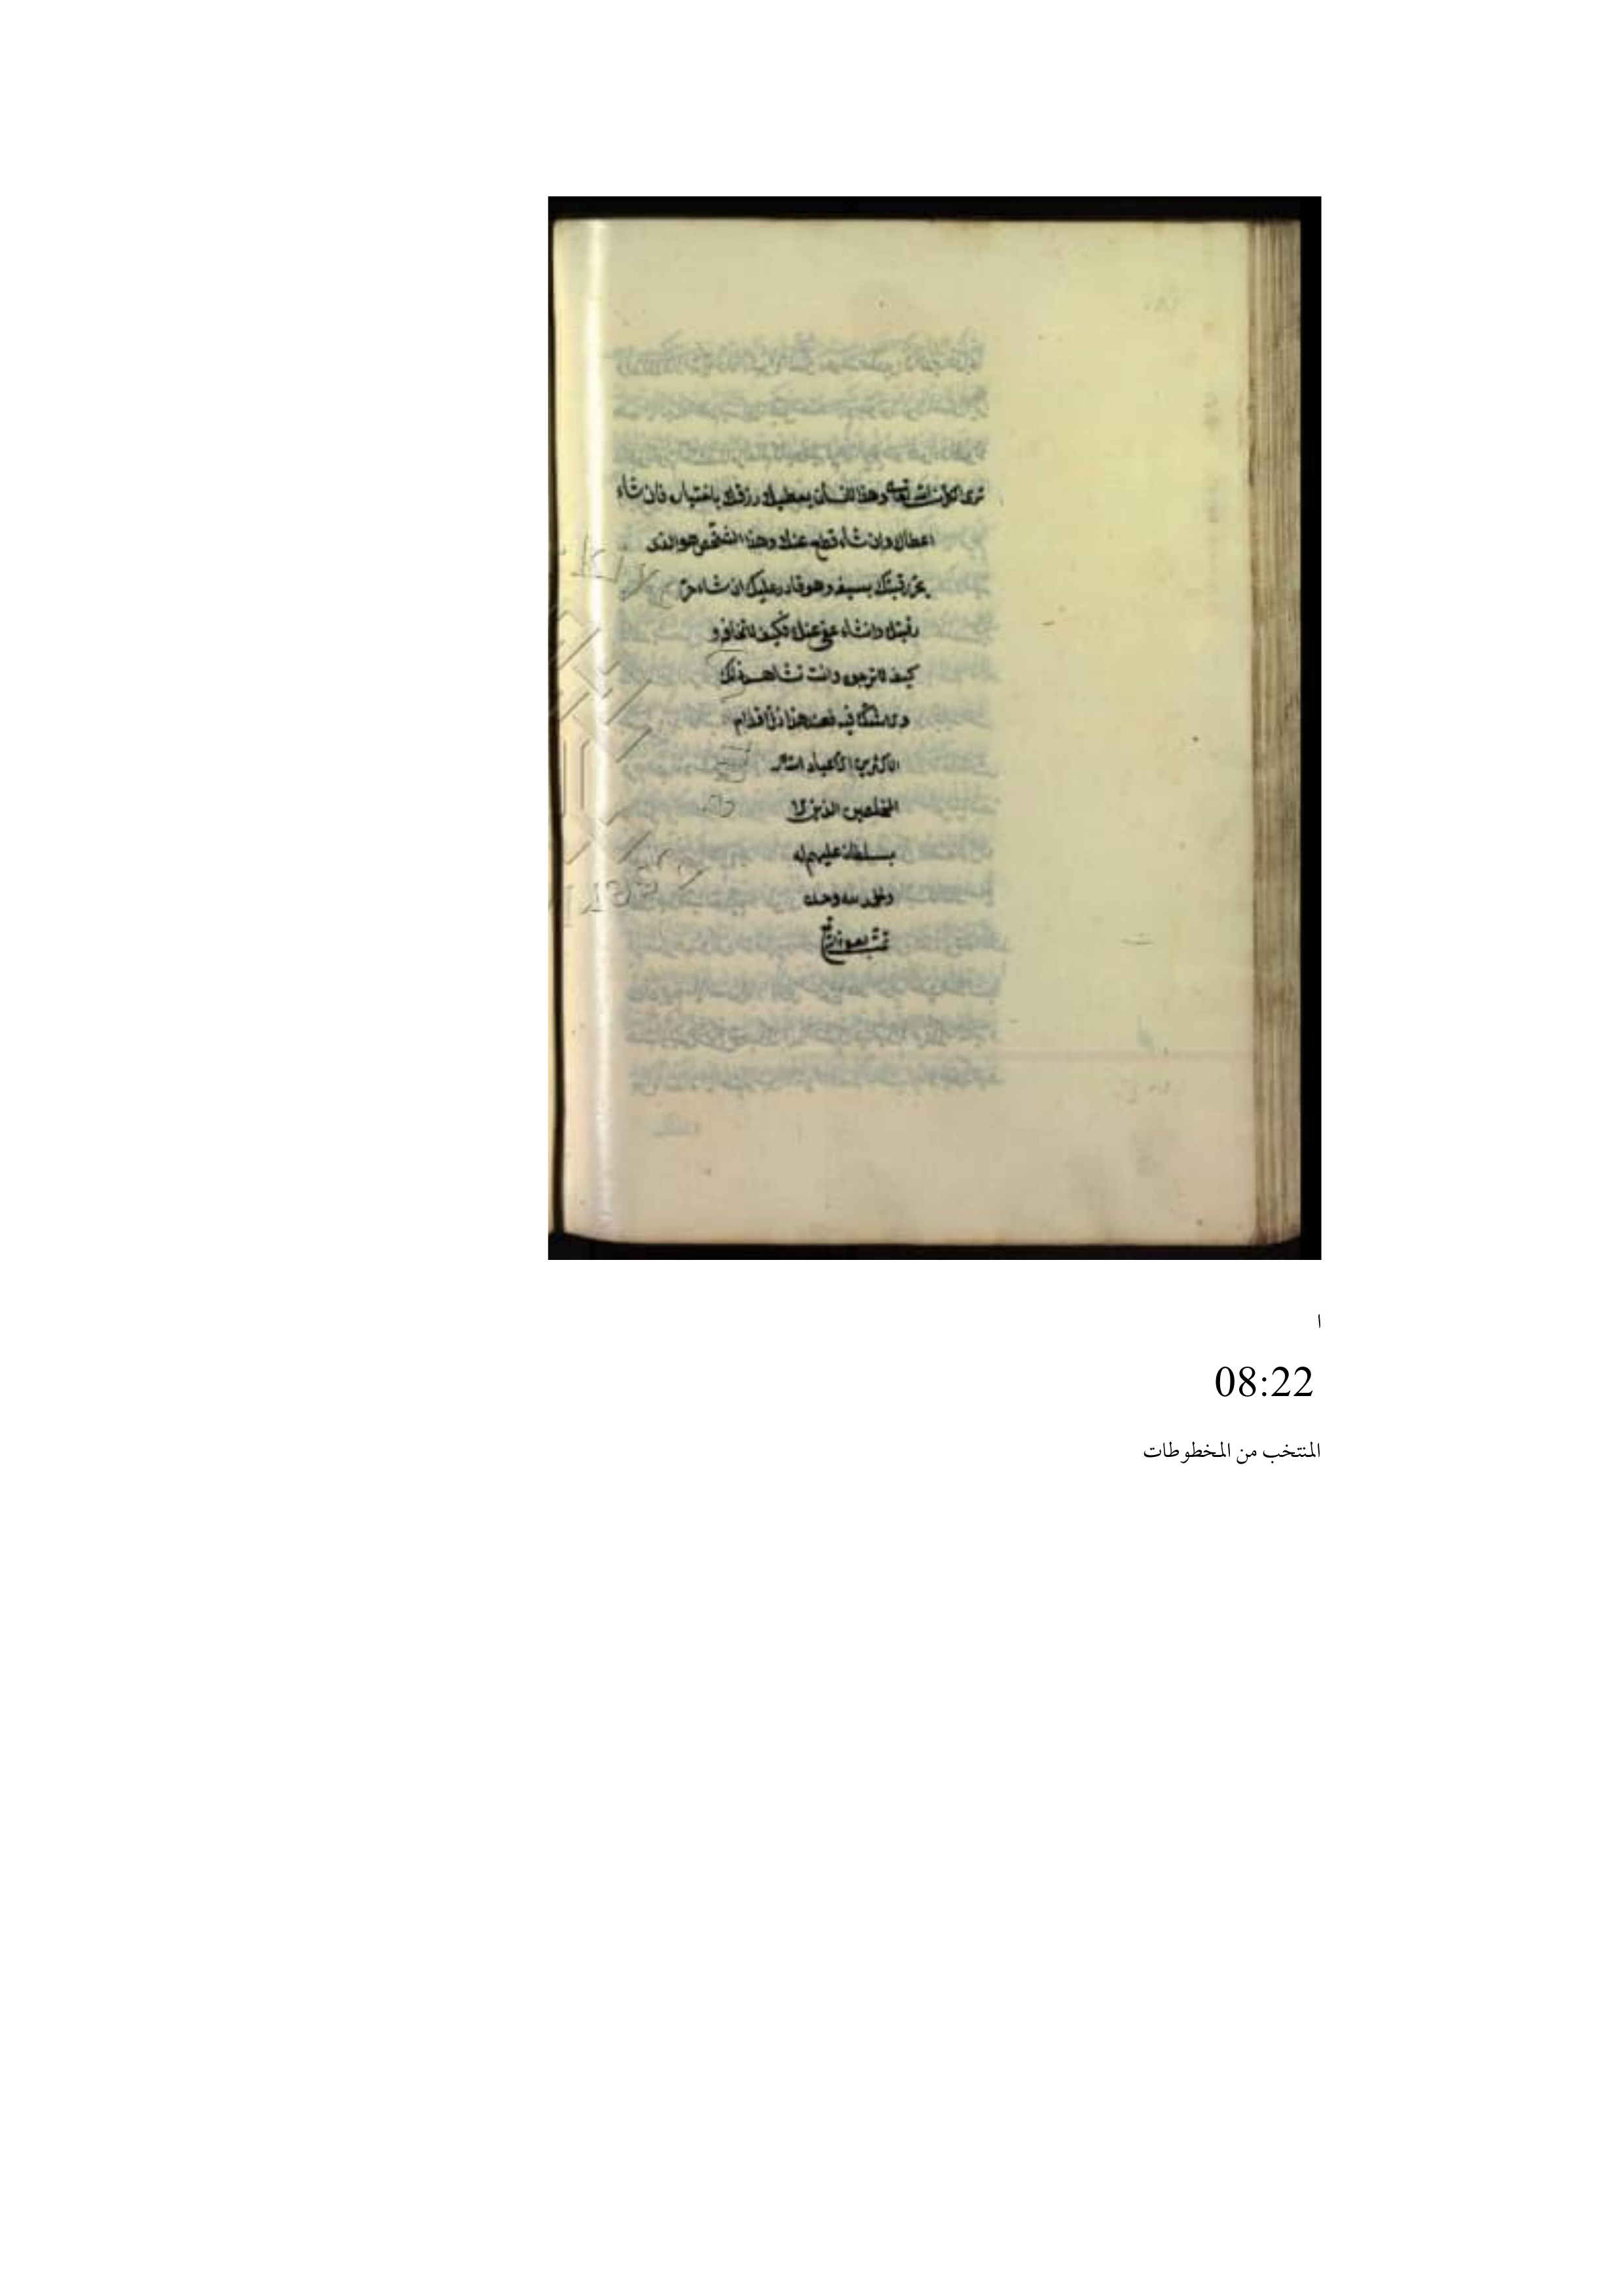 ترى الكل من الله تعالى وهذا انسان يعطيك رزقك باختياره فان شاء
اعطاك وان شاء قطع عنك وهذا الشخص هو الذي
يحز رقبتك بسيفه وهو قادر عليك ان شاء حز
رقبتك وان شاء عفى عنك فكيف لا تخافه و
كيف لا ترجوه وانت تشاهد ذلك
ولا تشك فيه فعند هذا زل اقدام
الاكثرين الا عباد الله
المخلصين الذين لا
سلطان عليهم له
والحمد لله وحده
تمت
ا
08:22
المنتخب من المخطوطات